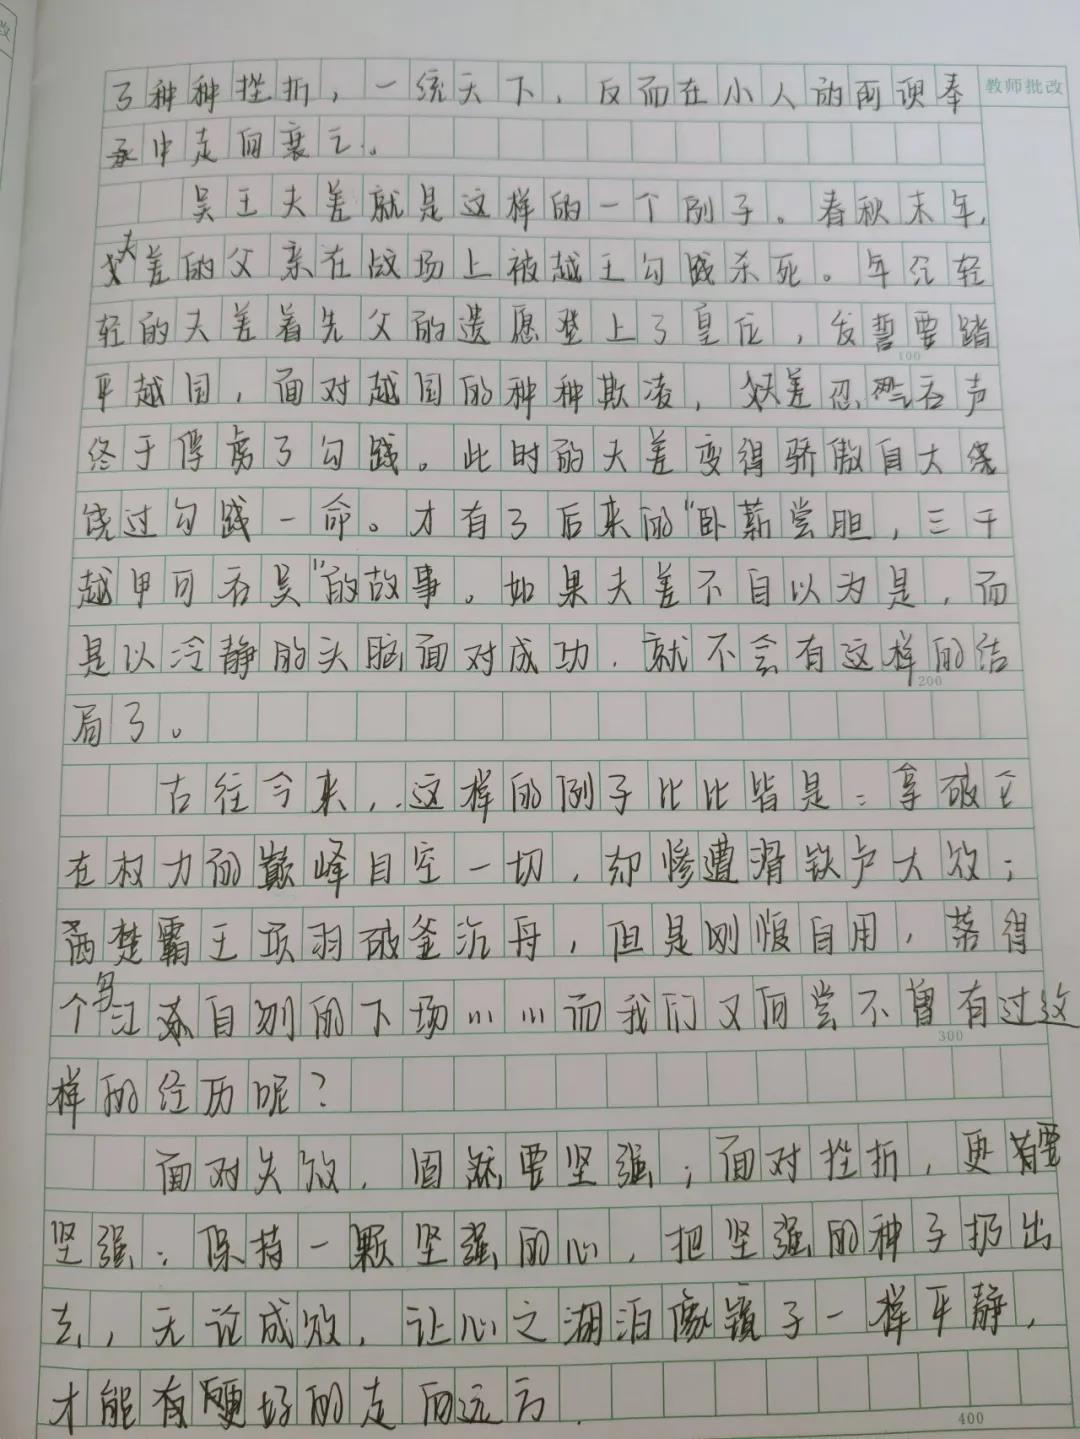 了种种挫折，一统天下，反而在小人的阿谀奉 教师批改
承中走向衰亡。
吴王夫差就是这样的一个例子。春秋末年，
夫差的父亲在战场上被越王勾践杀死。年纪轻
轻的夫差着先父的遗愿登上了皇位，发誓要踏
100
平越国，面对越国的种种欺凌，夫差忍气吞声
终于俘虏了勾践。此时的夫差变得骄傲自大绕
饶过勾践一命。才有了后来的“卧薪尝胆，三千
越甲可吞吴”的故事。如果夫差不自以为是，而
是以冷静的头脑面对成功，就不会有这样的结
200
局了。
古往今来，这样的例子比比皆是：拿破仑
在权力的巅峰目空一切，却惨遭滑铁卢大败；
西楚霸王项羽破釜沉舟，但是刚愎自用，落得
个乌江自刎的下场……而我们又何尝不曾有过这
300
样的经历呢？
面对失败，固然要坚强；面对挫折，更需要
坚强；保持一颗坚强的心，把坚强的种子扔出
去，无论成败，让心之湖泊像镜子一样平静，
才能有更好的走向远方．
400